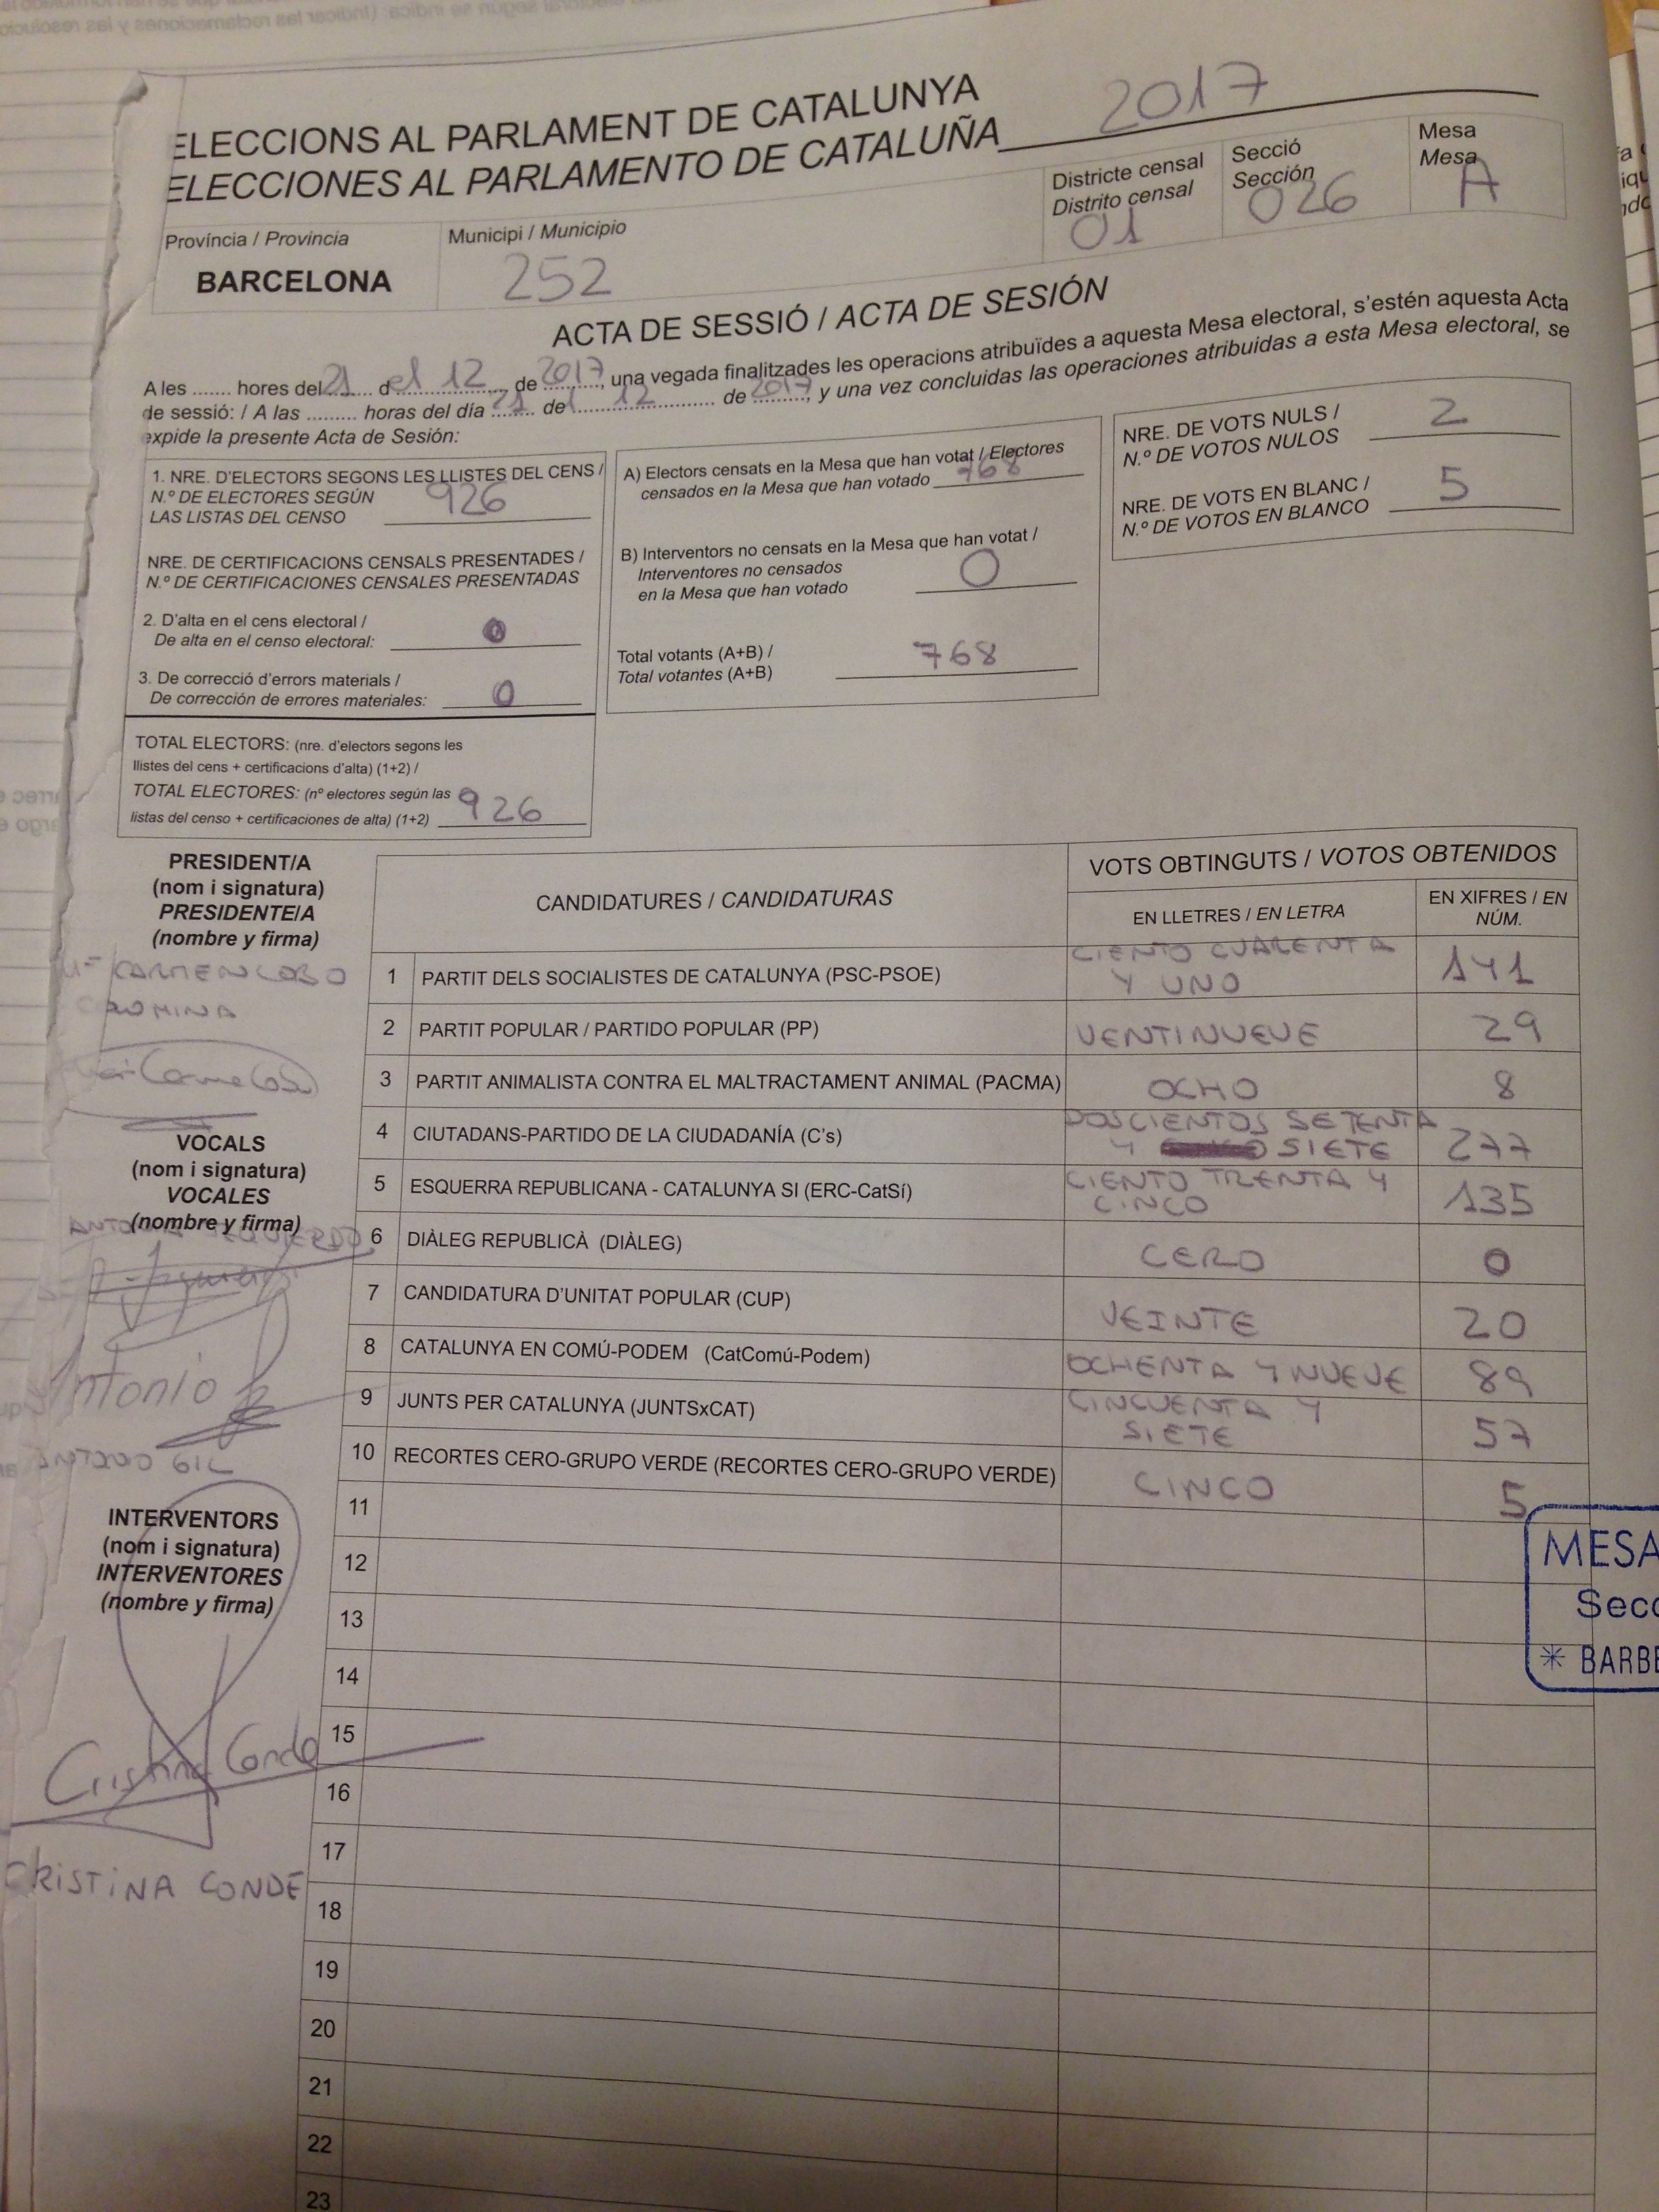 ELECCIONS AL PARLAMENT DE CATALUNYA
ELECCIONES AL PARLAMENTO DE CATALUÑA 2017
Província / Provincia
BARCELONA
Municipi / Municipio
252
Districte censal
Distrito censal
01
Secció
Sección
026
Mesa
Mesa
A
ACTA DE SESSIÓ / ACTA DE SESIÓN
A les ....... hores del 21 del 12 de 2017, una vegada finalitzades les operacions atribuïdes a aquesta Mesa electoral, s'estén aquesta Acta
de sessió: / A las ......... horas del día 21 de 12 de 2017, y una vez concluidas las operaciones atribuidas a esta Mesa electoral, se
expide la presente Acta de Sesión:
1. NRE. D'ELECTORS SEGONS LES LLISTES DEL CENS /
N.º DE ELECTORES SEGÚN
LAS LISTAS DEL CENSO 926
NRE. DE CERTIFICACIONS CENSALS PRESENTADES /
N.º DE CERTIFICACIONES CENSALES PRESENTADAS
2. D'alta en el cens electoral /
De alta en el censo electoral: 0
3. De correcció d'errors materials /
De corrección de errores materiales: 0
TOTAL ELECTORS: (nre. d'electors segons les
llistes del cens + certificacions d'alta) (1+2) /
TOTAL ELECTORES: (nº electores según las
listas del censo + certificaciones de alta) (1+2) 926
A) Electors censats en la Mesa que han votat / Electores
censados en la Mesa que han votado 768
B) Interventors no censats en la Mesa que han votat /
Interventores no censados
en la Mesa que han votado 0
Total votants (A+B) /
Total votantes (A+B) 768
NRE. DE VOTS NULS /
N.º DE VOTOS NULOS 2
NRE. DE VOTS EN BLANC /
N.º DE VOTOS EN BLANCO 5
PRESIDENT/A
(nom i signatura)
PRESIDENTE/A
(nombre y firma)
Mª CARMEN LOBO
VOCALS
(nom i signatura)
VOCALES
(nombre y firma)
Antonio
ANTONIO GIL
INTERVENTORS
(nom i signatura)
INTERVENTORES
(nombre y firma)
Cristina Conde
CRISTINA CONDE
CANDIDATURES / CANDIDATURAS
VOTS OBTINGUTS / VOTOS OBTENIDOS
EN LLETRES / EN LETRA
EN XIFRES / EN
NÚM.
1 PARTIT DELS SOCIALISTES DE CATALUNYA (PSC-PSOE) CIENTO CUARENTA
Y UNO 141
2 PARTIT POPULAR / PARTIDO POPULAR (PP) VENTINUEVE 29
3 PARTIT ANIMALISTA CONTRA EL MALTRACTAMENT ANIMAL (PACMA) OCHO 8
4 CIUTADANS-PARTIDO DE LA CIUDADANÍA (C's) DOSCIENTOS SETENTA
Y SIETE 277
5 ESQUERRA REPUBLICANA - CATALUNYA SI (ERC-CatSí) CIENTO TRENTA Y
CINCO 135
6 DIÀLEG REPUBLICÀ (DIÀLEG) CERO 0
7 CANDIDATURA D'UNITAT POPULAR (CUP) VEINTE 20
8 CATALUNYA EN COMÚ-PODEM (CatComú-Podem) OCHENTA Y NUEVE 89
9 JUNTS PER CATALUNYA (JUNTSxCAT) CINCUENTA Y
SIETE 57
10 RECORTES CERO-GRUPO VERDE (RECORTES CERO-GRUPO VERDE) CINCO 5
11
12
13
14
15
16
17
18
19
20
21
22
23
MESA
* BARBE